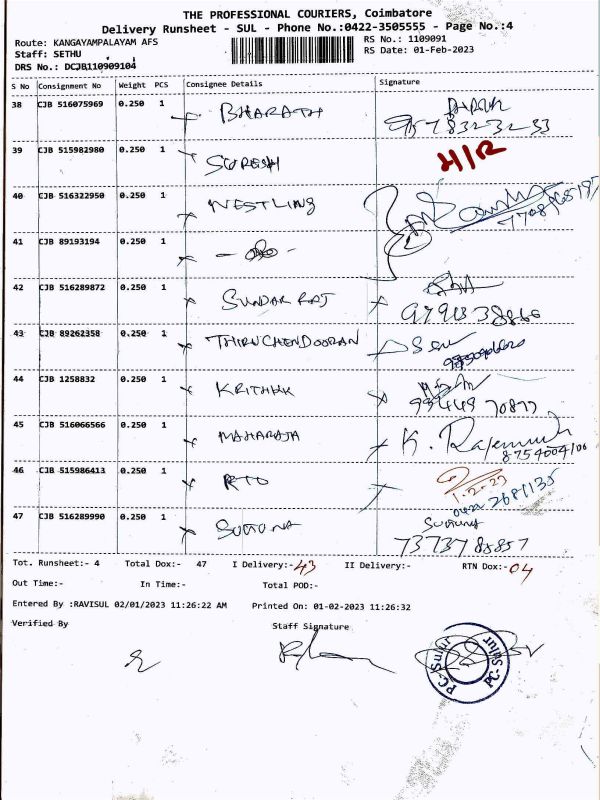 THE PROFESSIONAL COURIERS, Coimbatore
Delivery Runsheet - SUL - Phone No.:0422-3505555 - Page No.:4
Route: KANGAYAMPALAYAM AFS
RS No.: 1109091
Staff: SETHU
RS Date: 01-Feb-2023
DRS No.: DCJB110909104
S No Consignment No Weight PCS Consignee Details Signature
38 CJB 516075969 0.250 1 BHARATH
9578323233
39 CJB 515982980 0.250 1 SURESH H/R
40 CJB 516322950 0.250 1 NESTLING
41 CJB 89193194 0.250 1 - do -
42 CJB 516289872 0.250 1 SUNDAR RAJ
43 CJB 89262358 0.250 1 THIRUCHENDOORAN
44 CJB 1258832 0.250 1 KRITHIK
99449 70877
45 CJB 516066566 0.250 1 MAHARAJA K.
8754004106
46 CJB 515986413 0.250 1 RTO
1-2-23
0422 2681135
47 CJB 516289990 0.250 1 SUGUNA Suguna
7373788857
Tot. Runsheet:- 4 Total Dox:- 47 I Delivery:- 43 II Delivery:- RTN Dox:- 04
Out Time:- In Time:- Total POD:-
Entered By :RAVISUL 02/01/2023 11:26:22 AM Printed On: 01-02-2023 11:26:32
Verified By Staff Signature
PC-Sulur PC-Sulur